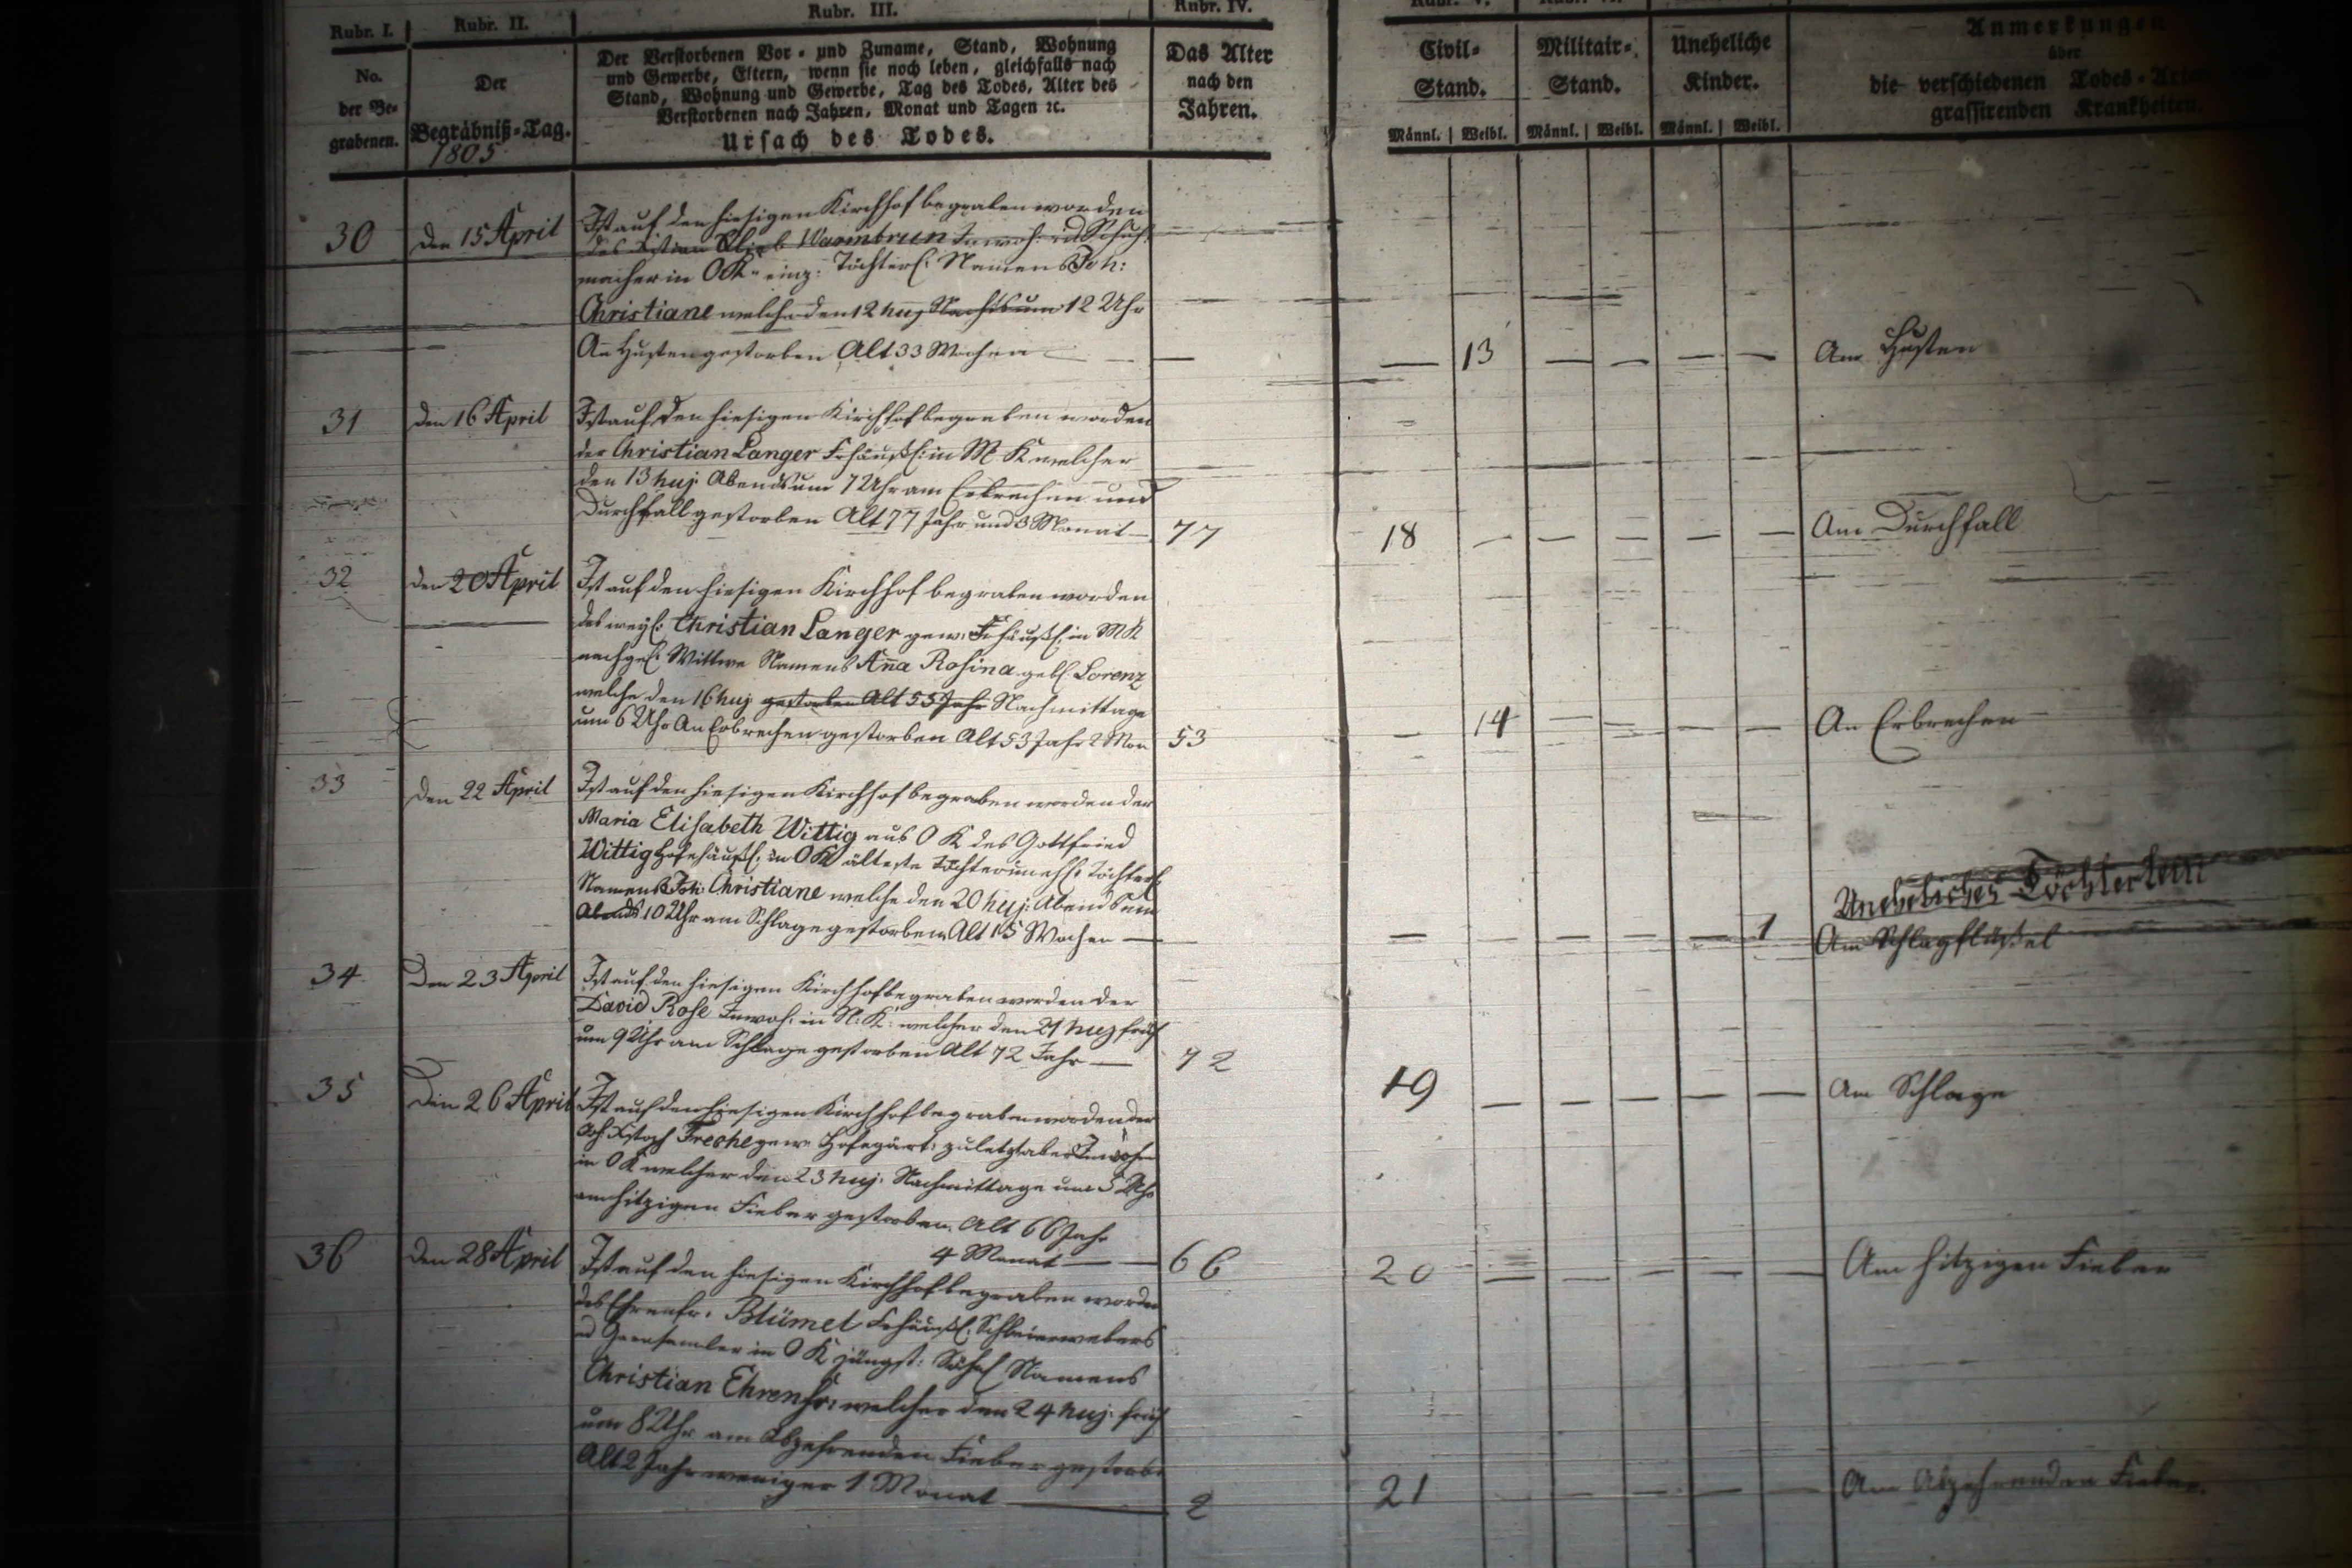 Rubr. I.
Rubr. II.
Rubr. III.
Rubr. IV.
No.
der Be-
grabenen.
Der
Begräbniß-Tag.
1805
Der Verstorbenen Vor- und Zuname, Stand, Wohnung
und Gewerbe, Eltern, wenn sie noch leben, gleichfalls nach
Stand, Wohnung und Gewerbe, Tag des Todes, Alter des
Verstorbenen nach Jahren, Monat und Tagen ꝛc.
Ursach des Todes.
Das Alter
nach den
Jahren.
Civil-
Stand.
Militair-
Stand.
Uneheliche
Kinder.
Männl. Weibl. Männl. Weibl. Männl. Weibl.
Anmerkungen
über
die verschiedenen Todes-Arten
grassirenden Krankheiten.
30
den 15 April
Ist auf den hiesigen Kirchhof begraben worden
des Warmbrun Inwoh: u Schuh-
macher in OK einz: Töchterl: Namens Joh:
Christiane welche den 12 huj Nachts um 12 Uhr
An Husten gestorben Alt 33 Wochen —
13
Am Husten
31
den 16 April
Ist auf den hiesigen Kirchhof begraben worden
der Christian Langer Frhäußl: in M K welcher
den 13 huj: Abends um 7 Uhr am Erbrechen und
Durchfall gestorben Alt 77 Jahr und 3 Monat —
77
18
Am Durchfall
32
den 20 April
Ist auf den hiesigen Kirchhof begraben worden
des weyl: Christian Langer gew: Frhäußl: in M K
nachgel: Wittwe Namens Anna Rosina geb: Lorenz
welche den 16 huj gestorben Alt 55 Jahr Nachmittage
um 6 Uhr An Erbrechen gestorben Alt 53 Jahr 2 Mon
53
14
An Erbrechen
33
den 22 April
Ist auf den hiesigen Kirchhof begraben worden der
Maria Elisabeth Wittig aus O K des Gottfried
Wittig Hofehäußl: in OK älteste Tochter unehl: Töchterl
Namens Joh: Christiane welche den 20 huj: Abends um
Abends 10 Uhr am Schlage gestorben Alt 15 Wochen —
1
Uneheliches Töchterlein
Am Schlagflüßel
34
Den 23 April
Ist auf den hiesigen Kirchhof begraben worden der
David Rose Inwoh: in N: K: welcher den 21 huj früh
um 9 Uhr am Schlage gestorben Alt 72 Jahr —
72
19
Am Schlage
35
Den 26 April
Ist auf den hiesigen Kirchhof begraben worden der
Freche gew: Hofegärt: zuletzt aber Inwohn
in O K welcher den 23 huj: Nachmittage um 5 Uhr
am hitzigen Fieber gestorben Alt 66 Jahr
4 Monat —
66
20
Am hitzigen Fieber
36
den 28 April
Ist auf den hiesigen Kirchhof begraben worden
des Ehrenfr: Blümel Frhäußl: Schleierwebers
u Garnsamler in O K jüngst: Söhnl Namens
Christian Ehrenfr: welcher den 24 huj: früh
um 8 Uhr am Abzehrenden Fieber gestorb:
Alt 2 Jahr weniger 1 Monat —
2
21
Am Abzehrenden Fieber